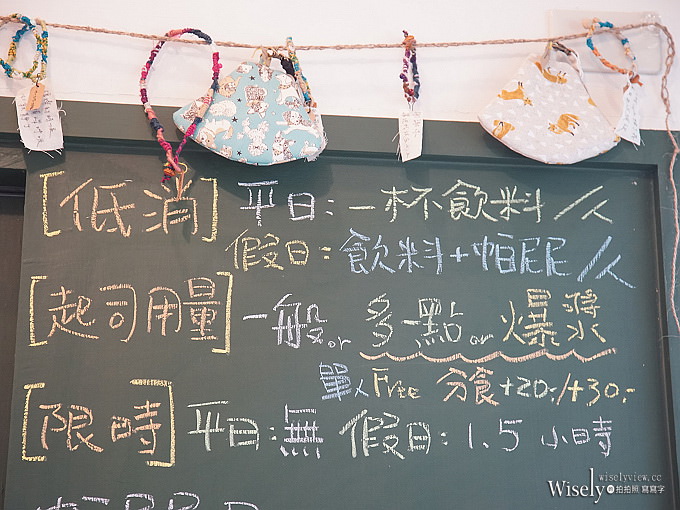 [低消] 平日:一杯飲料/人
假日:飲料+帕尼尼/人
[起司用量] 一般 or 多一點 or 爆漿
單人Free 分食+20.-/+30.-
[限時] 平日:無 假日:1.5小時
wiselyview.cc
Wisely 拍拍照 寫寫字